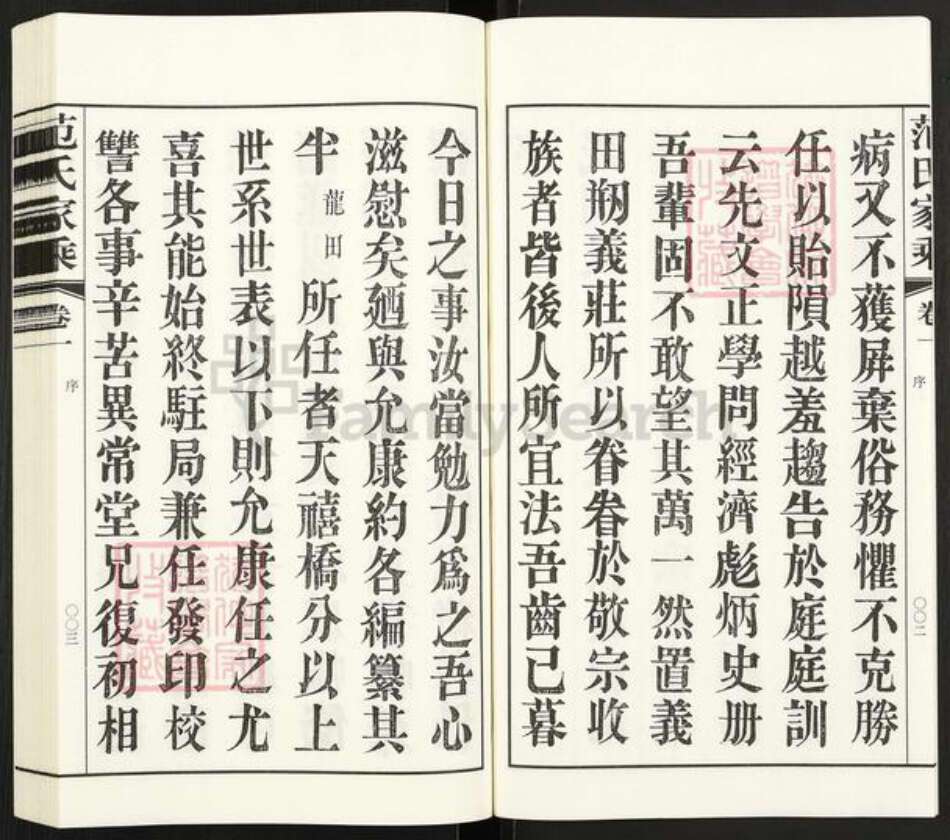 范氏家乘
卷一
序
〇〇二
病又不獲屏棄俗務懼不克勝
任以貽隕越羞趨告於庭庭訓
云先文正學問經濟彪炳史册
吾輩固不敢望其萬一然置義
田剏義莊所以眷眷於敬宗收
族者皆後人所宜法吾齒已暮
今日之事汝當勉力為之吾心
滋慰矣廼與允康約各編纂其
半龍田所任者天禧橋分以上
世系世表以下則允康任之尤
喜其能始終駐局兼任發印校
讐各事辛苦異常堂兄復初相
范氏家乘
卷一
序
〇〇三
FamilySearch